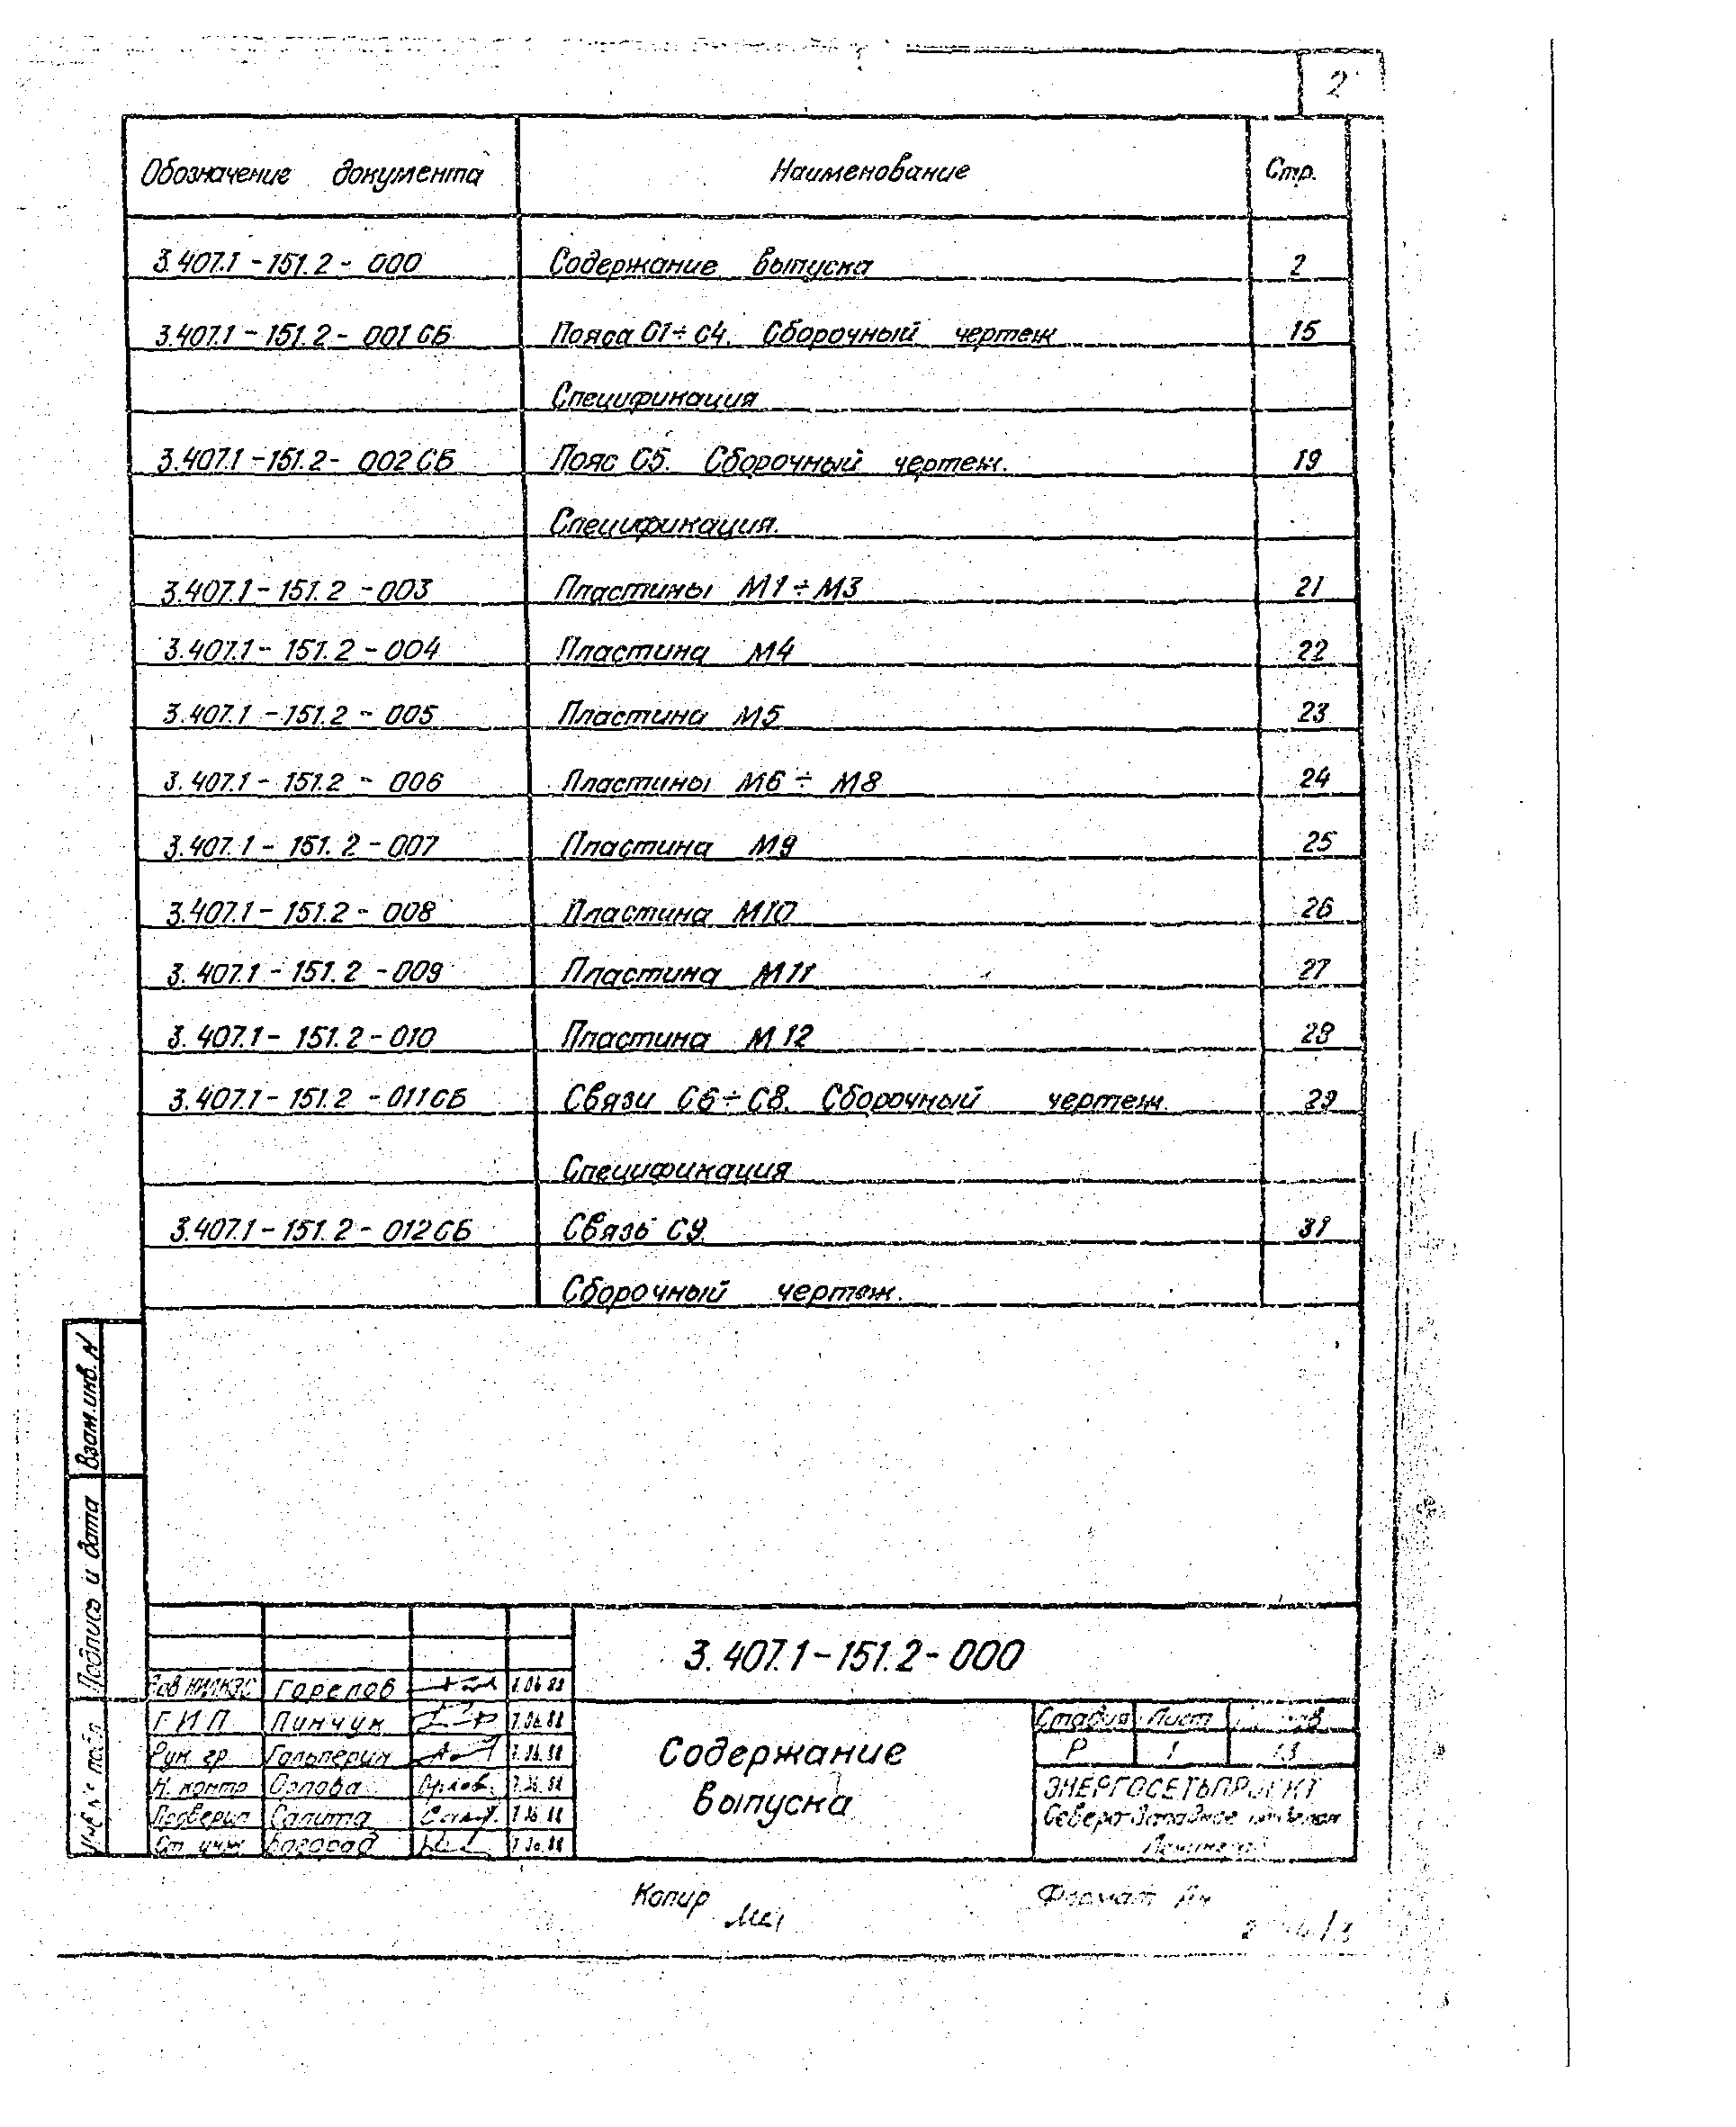 2
Обозначение документа Наименование Стр.
3.407.1-151.2-000 Содержание выпуска 2
3.407.1-151.2-001СБ Пояса С1÷С4. Сборочный чертеж 15
Спецификация
3.407.1-151.2-002СБ Пояс С5. Сборочный чертеж. 19
Спецификация.
3.407.1-151.2-003 Пластины М1÷М3 21
3.407.1-151.2-004 Пластина М4 22
3.407.1-151.2-005 Пластина М5 23
3.407.1-151.2-006 Пластины М6÷М8 24
3.407.1-151.2-007 Пластина М9 25
3.407.1-151.2-008 Пластина М10 26
3.407.1-151.2-009 Пластина М11 27
3.407.1-151.2-010 Пластина М12 28
3.407.1-151.2-011СБ Связи С6÷С8. Сборочный чертеж. 29
Спецификация
3.407.1-151.2-012СБ Связь С9. 31
Сборочный чертеж.
Взам.инв.N
Подпись и дата
3.407.1-151.2-000
Горелов
ГИП Пинчук
Рук. гр. Гальперин
Н. контр Орлова
Проверил Салита
Ст. инж Богорад
Содержание
выпуска
Стадия Лист
Р 1 13
ЭНЕРГОСЕТЬПРОЕКТ
Северо-Западное
Копир
Формат А4